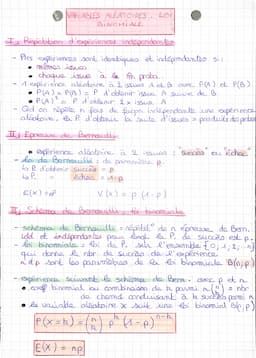 ② VARIABLES ALÉATOIRES - LOI
BINOMIALE
I, Répétition d'expériences indépendantes
- Des expériences sont identiques et indépendantes si :
• mêmes issues
• chaque issue à la m̂ proba.
- 1 expérience aléatoire à 2 issues A et B avec P(A) et P(B)
• P(A) × P(B) = P d'obtenir issue A suivie de B.
• P(A) = P d'obtenir 1 issue A
- Qd on répète n fois de façon indépendante une expérience
aléatoire, la P d'obtenir la suite d'issues = produit de probas
II, Épreuve de Bernoulli
- expérience aléatoire à 2 issues : "succès" ou "échec"
- loi de Bernoulli : de paramètre p.
↳ P. d'obtenir succès = p
↳ P. échec = 1-p
E(X) = p V(X) = p (1-p)
III, Schéma de Bernoulli, loi binomiale
- schéma de Bernoulli = répét° de n épreuve de Bern.
id et indépendantes pour dont la P. de succès est p.
- loi binomiale = loi de P. sur l'ensemble {0, 1, 2, n}
qui donne le nbr de succès de l'expérience
n et p sont les paramètres de la loi binomiale B(n,p)
- expérience suivant le schéma de Bern. avec p et n
• coef binomial ou combinaison de n parmi k (n k) = nbr
de chemin conduisant à k succès parmi n
• la variable aléatoire X suit une loi binomiale B(n,p)
P(X=k) = (n k) p^k (1-p)^n-k
E(X) = np